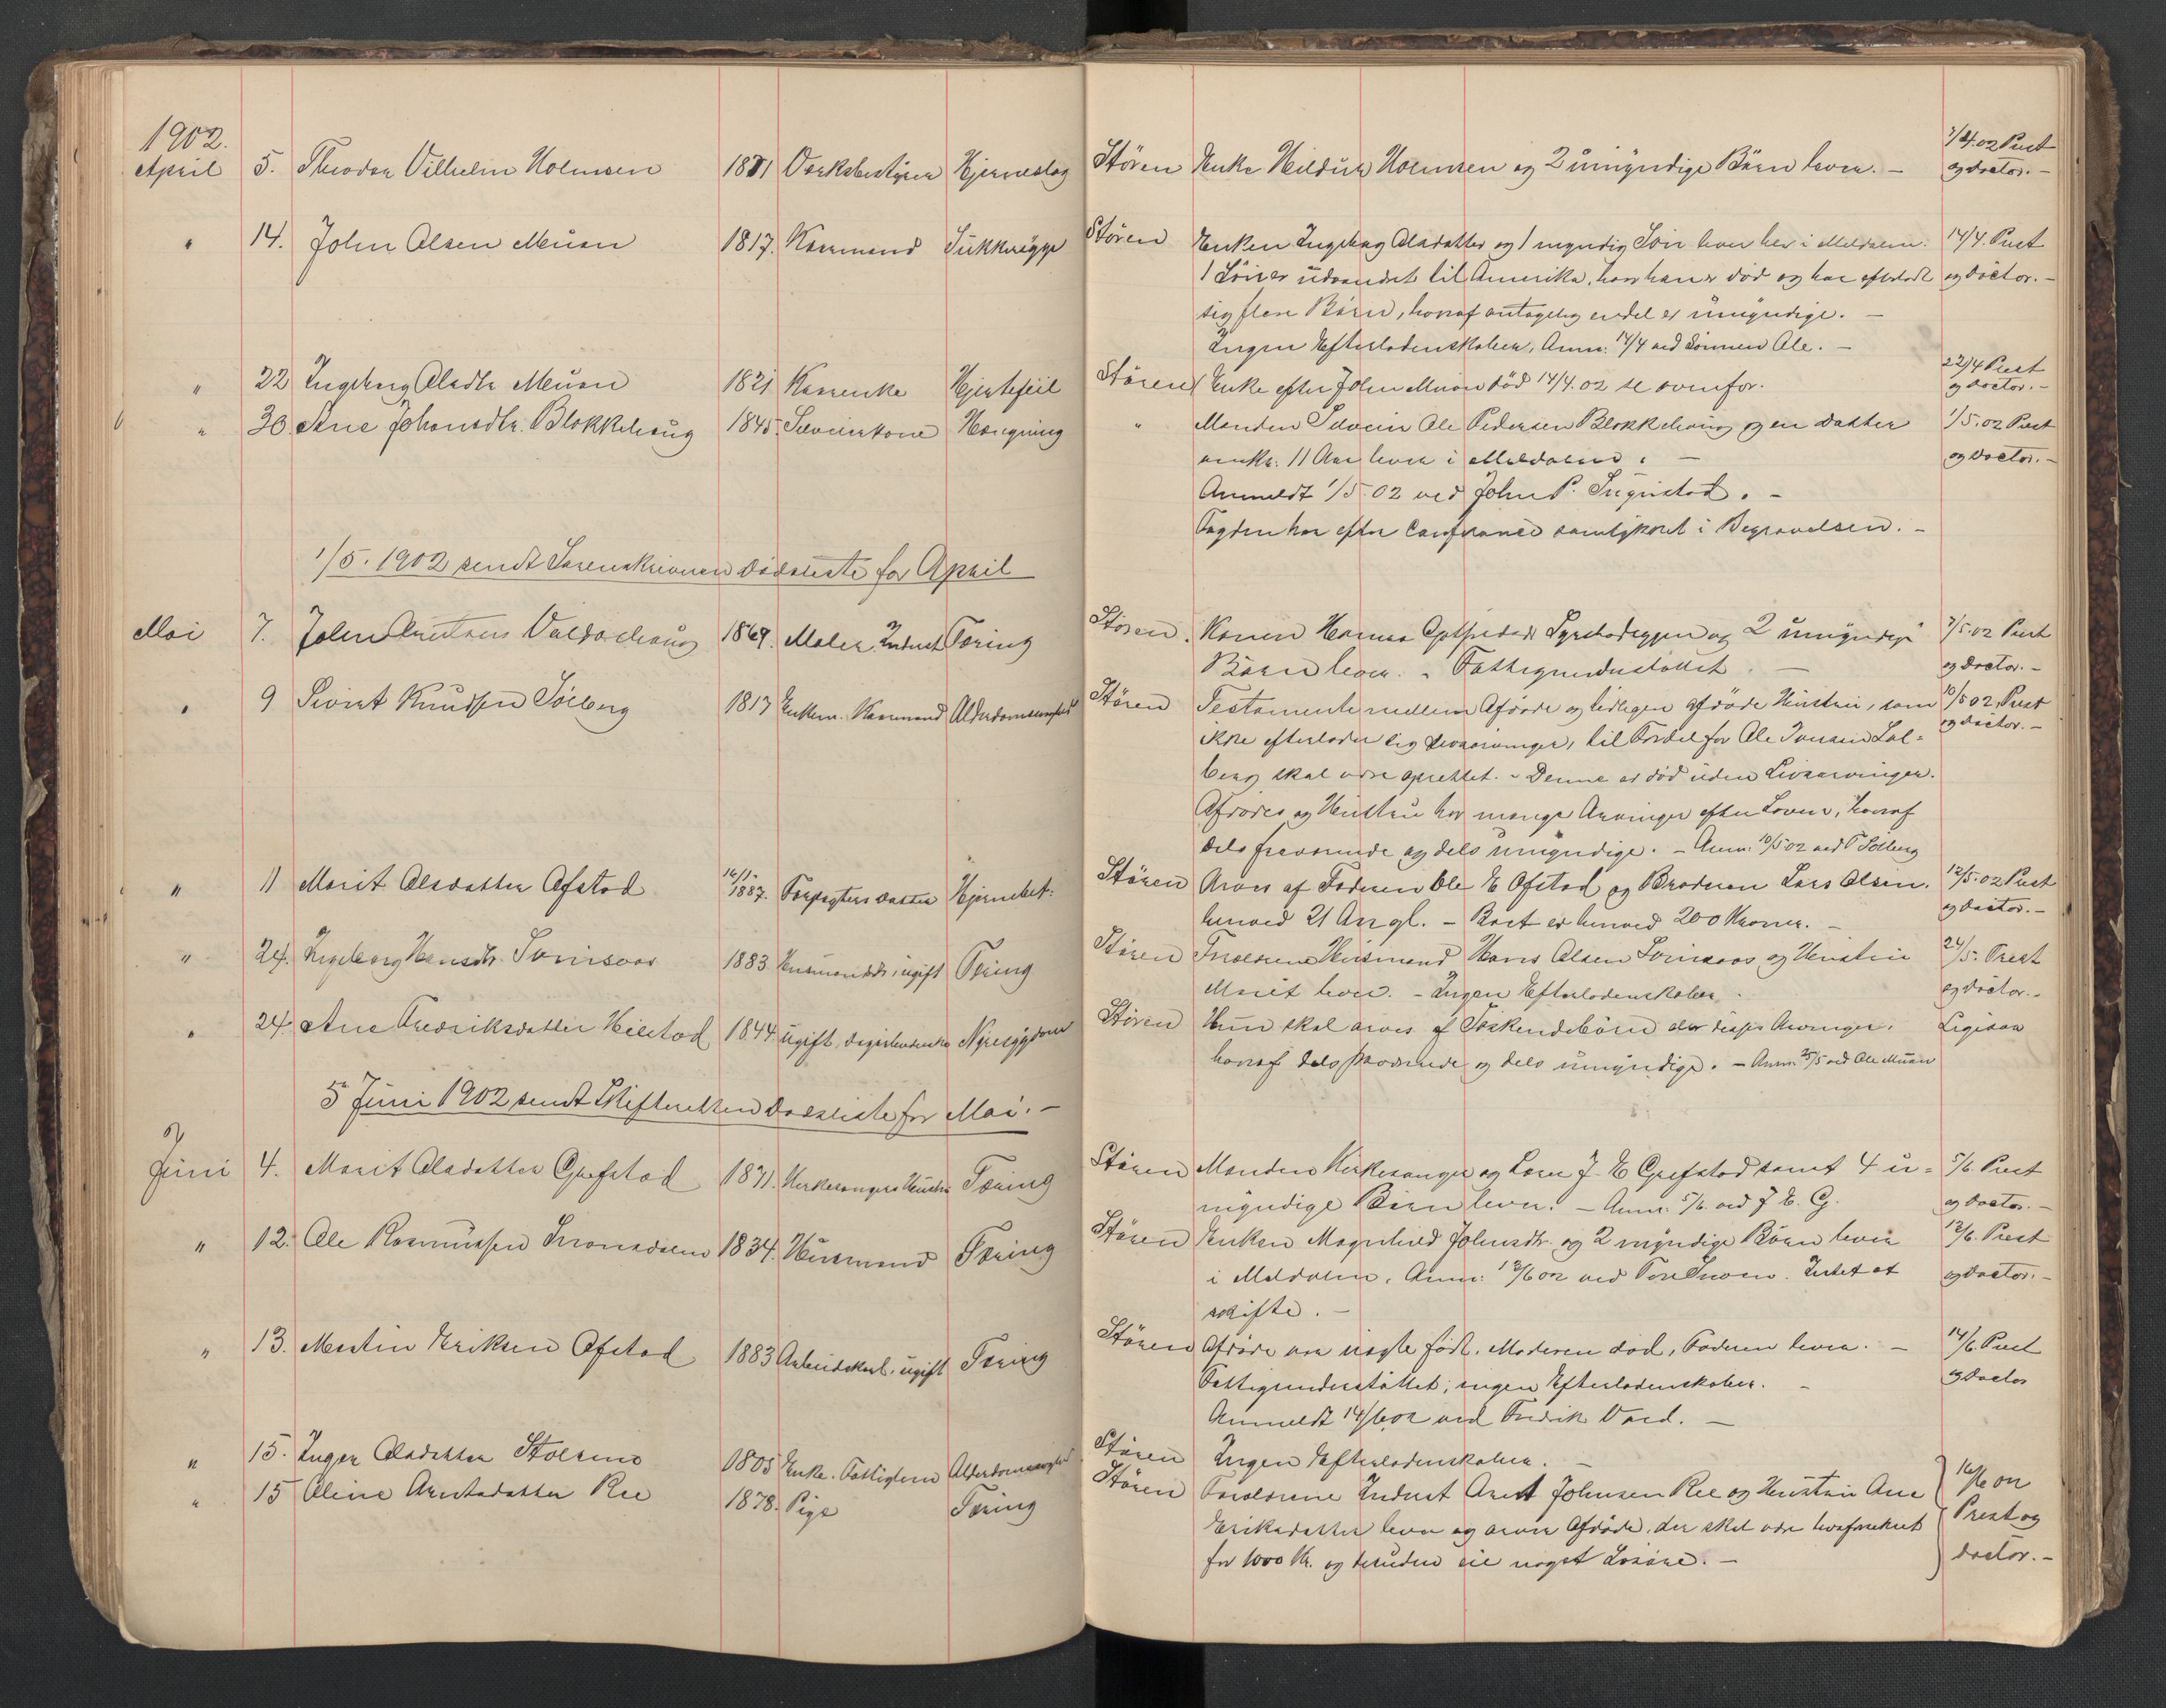 1902.
April 5. Theodor Vilhelm Holmsen 1871 Værksbestyrer Hjerneslag Støren Enke Hildur Holmsen og 2 umyndige Børn lever. – 7/4.02 Prest
og Doctor. –
" 14. John Olsen Muan 1817. Kaarmand Sukkersyge Støren Enken Ingeborg Olsdatter og 1 myndig Søn lever her i Meldalen. 14/4. Prest
1 Søn er udvandret til Amerika, hvor han er død og har efterladt og Doctor. –
sig flere Børn, hvoraf antagelig endel er umyndige. –
Ingen Efterladenskaber, Anm. 14/4 ved Sønnen Ole. –
" 22 Ingeborg Olsdtr Muan 1821 Kaarenke Hjertefeil Støren Enke efter John Muan død 14/4.02 se ovenfor. 22/4 Prest
og Doctor. –
" 30. Ane Johansdtr. Blokkehaug 1845. Selveierkone " Manden Selveier Ole Pedersen Blokkehaug og en Datter 1/5.02 Prest
omkr. 11 Aar lever i Meldalen. – og Doctor. –
Anmeldt 1/5.02 ved John P. –
efter Conferance samtykket i Begravelsen. –
1/5. 1902 sendt Sorenskriveren Dødsliste for April
Mai 7. John 1869. Maler Inderst Tæring Støren. Konen og 2 umyndige 7/5.02 Prest
Børn lever. – Fattigunderstøttet. – og Doctor. –
" 9 Sivert Knudsen Solberg 1817 Enkem. Kaarmand Alderdomssvaghed Støren Testamente mellem Afdøde og tidligere afdøde Hustru, som 10/5 02, Prest
ikke efterlader sig Livsarvinger, til Fordel for Ole Sol= og Doctor. –
berg skal være oprettet. – Denne er død uden Livsarvinger.
Afdødes og Hustru har mange Arvinger efter Loven, hvoraf
dels fraværende og dels umyndige. – Anm. 10/5 02 ved Solberg
" 11 Marit Olsdatter Ofstad 16/1 1887. Forpagters Datter Hjernebet. Støren Arves af Faderen Ole E Ofstad og Broderen Lars Olsen. 12/5.02 Prest
henved 21 Aar gl. – Boet er henved 200 Kroner. – og Doctor. –
" 24. Ingeborg Hansdtr. 1883 Husmandsdtr, ugift Tæring Støren Forældrene Husmand Hans Olsen og Hustru 24/5. Prest
Marit lever. – Ingen Efterladenskaber. og Doctor. –
" 24. Ane Fredriksdatter 1844. ugift, Nyresygdom Støren Hun skal arves af Søskendebørn eller disses Arvinger. Ligesaa
hvoraf dels fraværende og dels umyndige. – Anm. 25/5 ved Ole Muan
5 Juni 1902 sendt Skifteretten Dødsliste for Mai. –
Juni 4. Marit Olsdatter Grefstad 1871. Kirkesangers Hustru Tæring Støren Manden Kirkesanger og Lærer J. E Grefstad samt 4 u= 5/6 Prest
myndige Børn lever. – Anm. 5/6. ved J E. G. og Doctor. –
" 12. Ole Rasmussen 1834. Husmand Tæring Støren Enken Magnhild Johnsdtr. og 2 myndige Børn lever 12/6. Prest
i Meldalen. Anm. 12/6 02 ved Intet at og Doctor. –
skifte. –
" 13. Martin Eriksen Ofstad 1883 Arbeidskarl, ugift Tæring Støren Afdøde var uægte født. Moderen død, Faderen lever. – 14/6. Prest
Fattigunderstøttet; ingen Efterladenskaber. – og Doctor
Anmeldt 14/6 02 ved Fredrik –
" 15. Inger Olsdatter Stolsmo 1805 Enke. Fattiglem Alderdomssvaghed Støren Ingen Efterladenskaber. –
" 15 Oline Arntsdatter Ree 1878. Pige Tæring Støren Forældrene Inderst Arnt Johnsen Ree og Hustru Ane 16/6 02
Eriksdatter lever og arver Afdøde, der skal være livsforsikret Prest og
for 1000 Kr. og desuden eie noget Løsøre. – Doctor. –